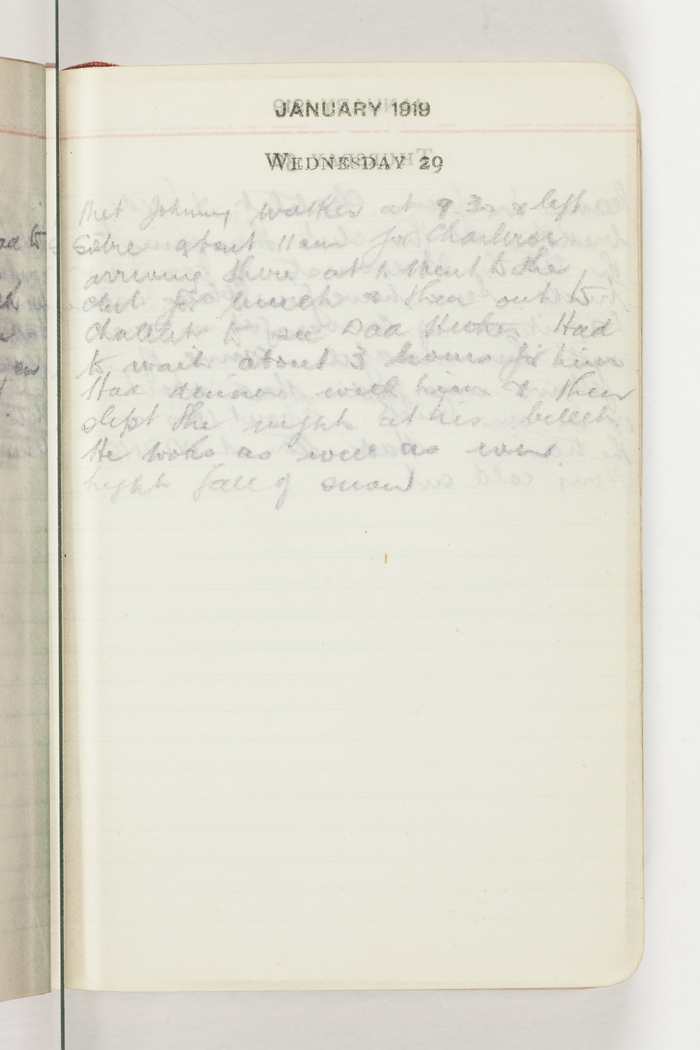 JANUARY 1919
WEDNESDAY 29
Met Johnny Walker at 9.30 & left
Solre about 11am for Charleroi
arriving there at 1. Went to the
club for lunch & then out to
to see Had
to wait about 3 hours for him
Had dinner with him & then
slept the night at his billet
He looks as well as ever.
light fall of snow
ad to